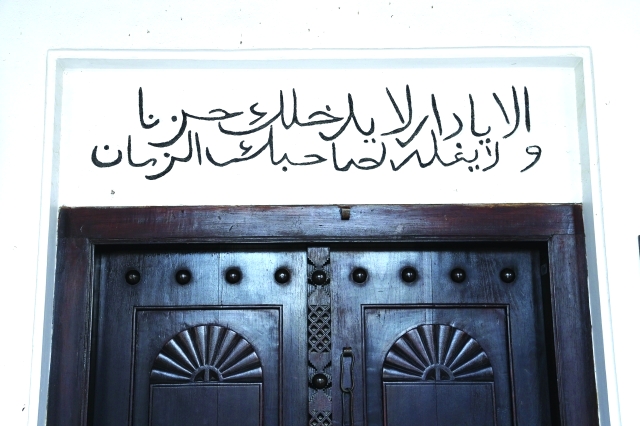 الا يا دار لا يدخلك حزنا
ولا يغدر صاحبك الزمان